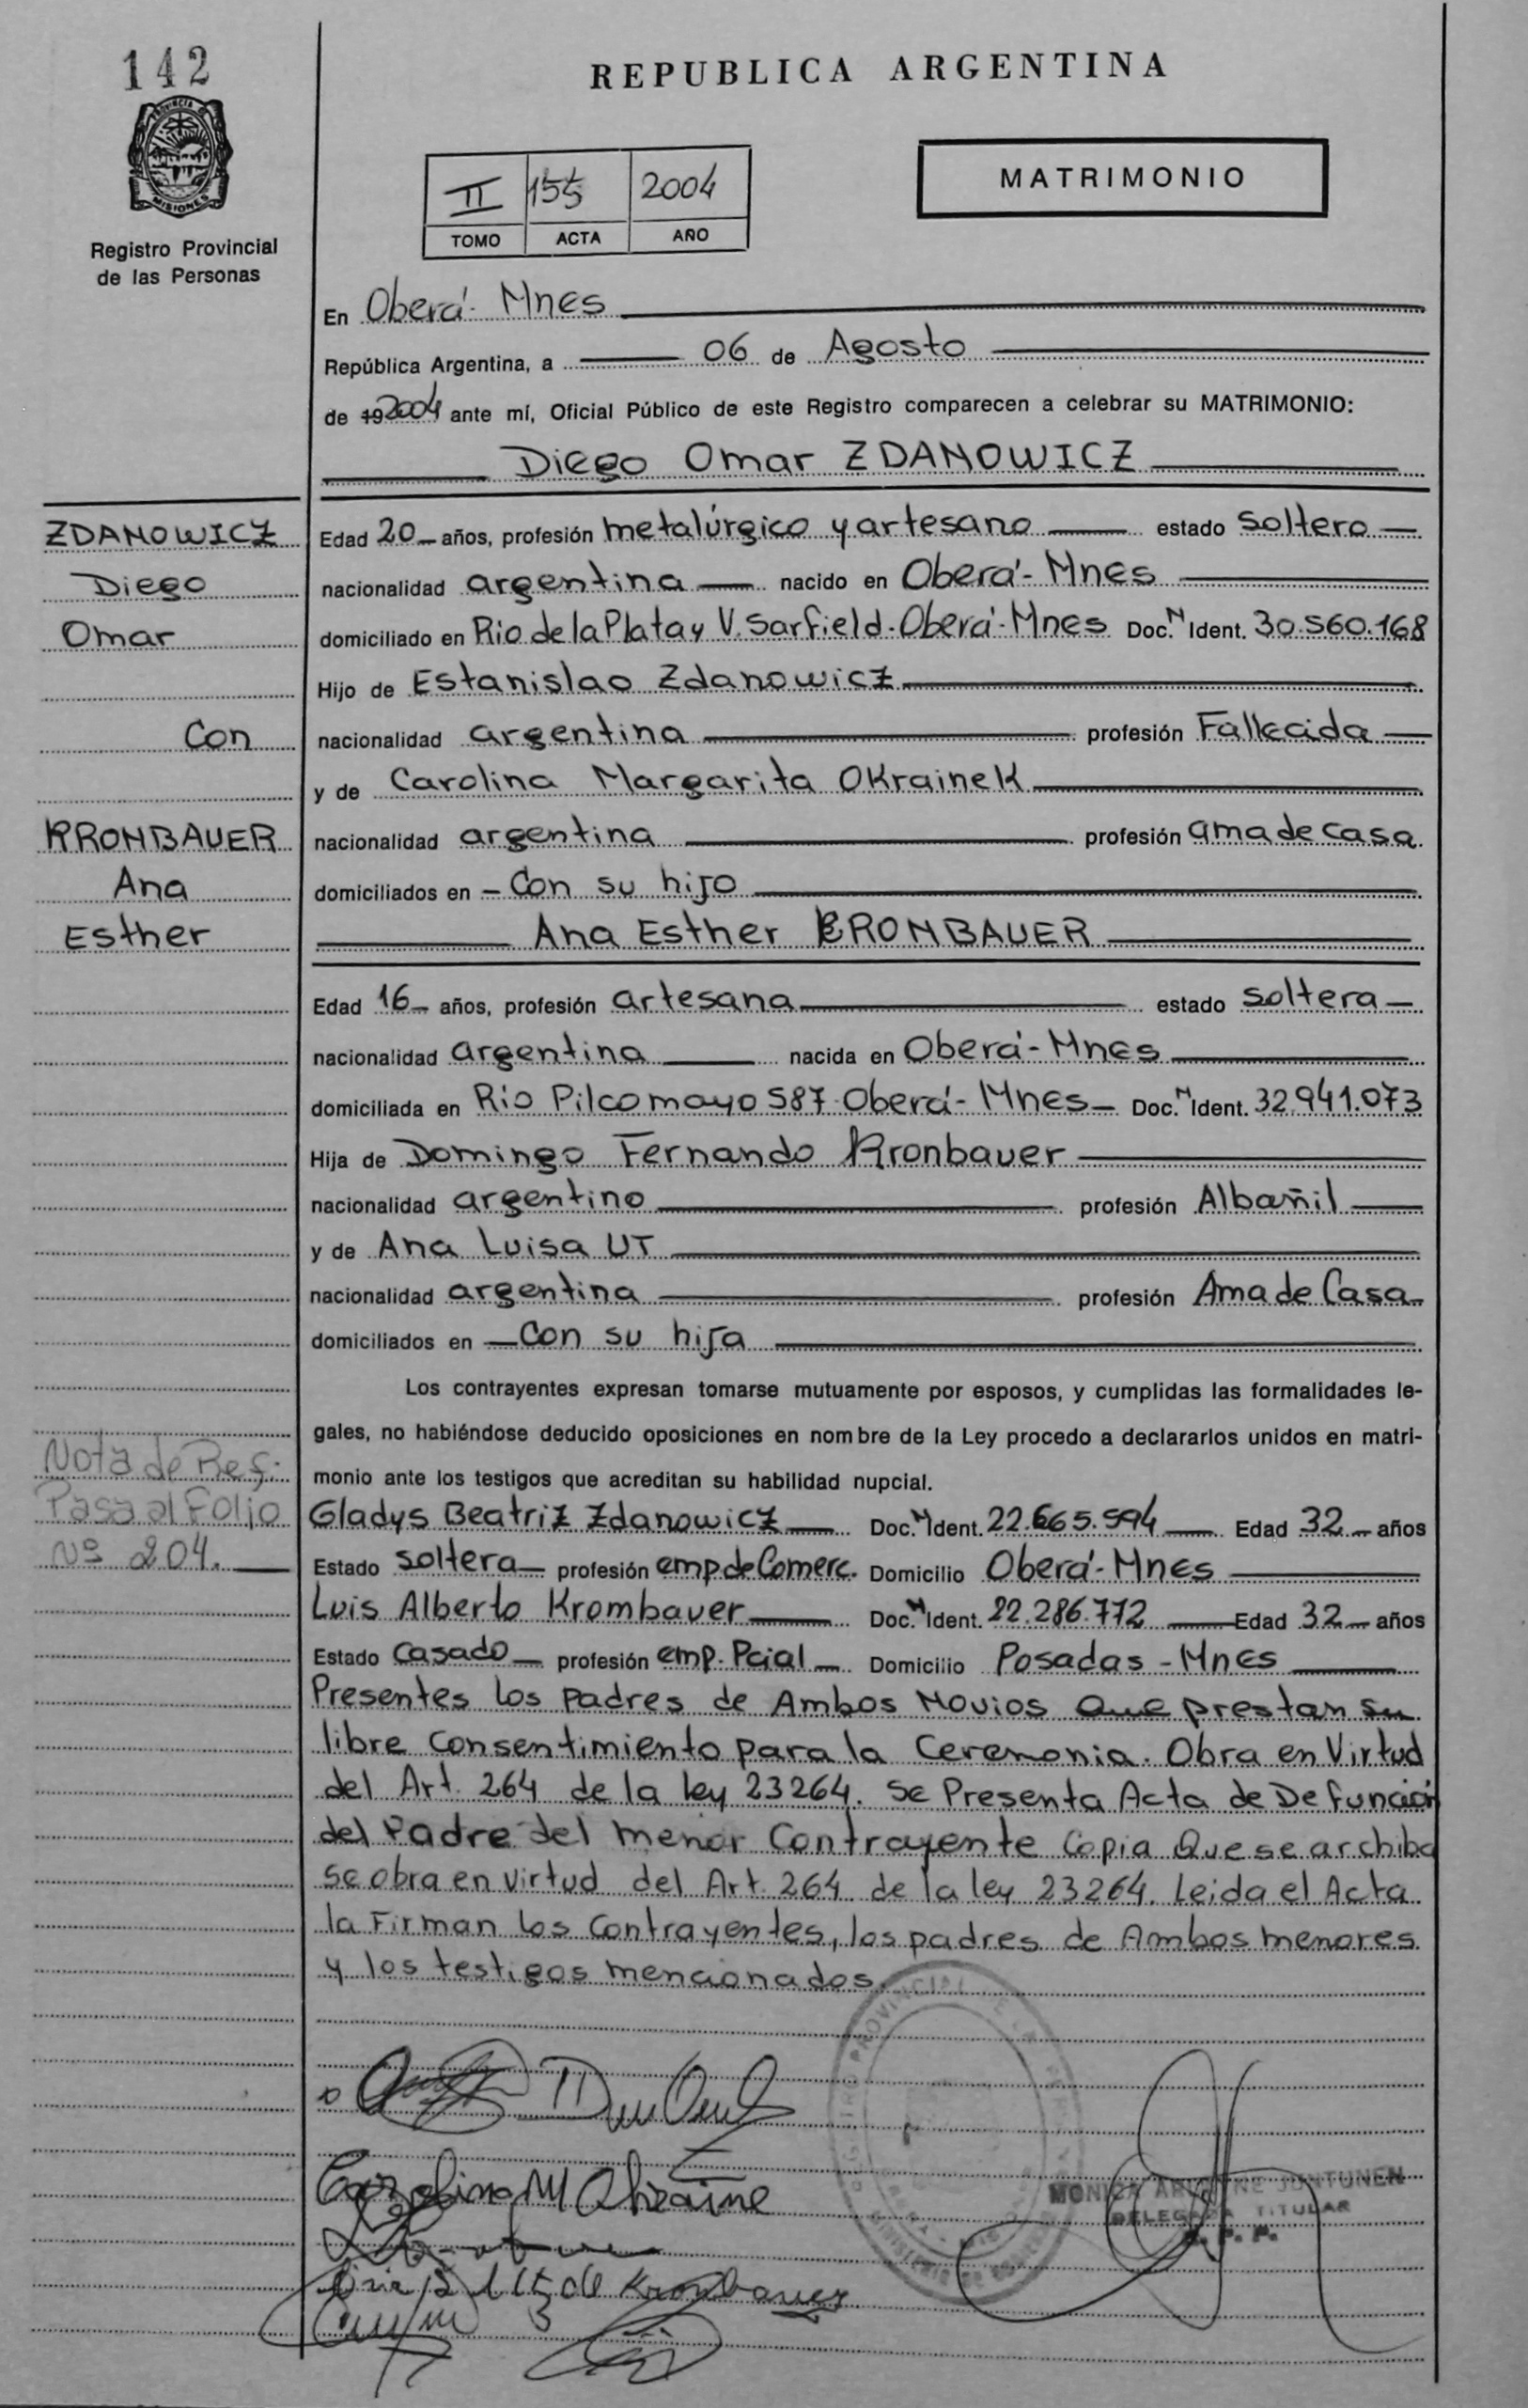 142
REPUBLICA ARGENTINA
PROVINCIA DE
MISIONES
Registro Provincial
de las Personas
MATRIMONIO
II 155 2004
TOMO ACTA AÑO
En Oberá - Mnes
República Argentina, a 06 de Agosto
de 19 2004 ante mí, Oficial Público de este Registro comparecen a celebrar su MATRIMONIO:
Diego Omar ZDANOWICZ
ZDANOWICZ
Diego
Omar
Con
KRONBAUER
Ana
Esther
Edad 20 años, profesión metalúrgico y artesano estado soltero
nacionalidad argentina nacido en Oberá - Mnes
domiciliado en Rio de la Plata y V. Sarfield - Oberá - Mnes Doc. N Ident. 30.560.168
Hijo de Estanislao Zdanowicz
nacionalidad argentina profesión Fallecida
y de Carolina Margarita OKraineK
nacionalidad argentina profesión ama de casa
domiciliados en - Con su hijo
Ana Esther KRONBAUER
Edad 16 años, profesión artesana estado soltera
nacionalidad argentina nacida en Oberá - Mnes
domiciliada en Rio Pilcomayo 587 - Oberá - Mnes Doc. N Ident. 32.941.073
Hija de Domingo Fernando Kronbauer
nacionalidad argentino profesión Albañil
y de Ana Luisa UT
nacionalidad argentina profesión Ama de Casa
domiciliados en - Con su hija
Los contrayentes expresan tomarse mutuamente por esposos, y cumplidas las formalidades le-
gales, no habiéndose deducido oposiciones en nombre de la Ley procedo a declararlos unidos en matri-
monio ante los testigos que acreditan su habilidad nupcial.
Nota de Ref.
Pasa al Folio
Nº 204.
Gladys Beatriz Zdanowicz Doc. N Ident. 22.665.594 Edad 32 años
Estado soltera profesión emp de Comerc. Domicilio Oberá - Mnes
Luis Alberto Krombauer Doc. N Ident. 22.286.772 Edad 32 años
Estado Casado profesión emp. Pcial Domicilio Posadas - Mnes
Presentes los padres de Ambos Novios que prestan su
libre Consentimiento para la Ceremonia. Obra en Virtud
del Art. 264 de la ley 23264. Se Presenta Acta de Defunción
del Padre del menor Contrayente Copia Que se archiba
se obra en virtud del Art. 264 de la ley 23264. Leida el Acta
la Firman los Contrayentes, los padres de Ambos menores
y los testigos mencionados.
Carolina M Okraine
de Kronbauer
JUNTUNEN
DELEGADA TITULAR
R. P. P.